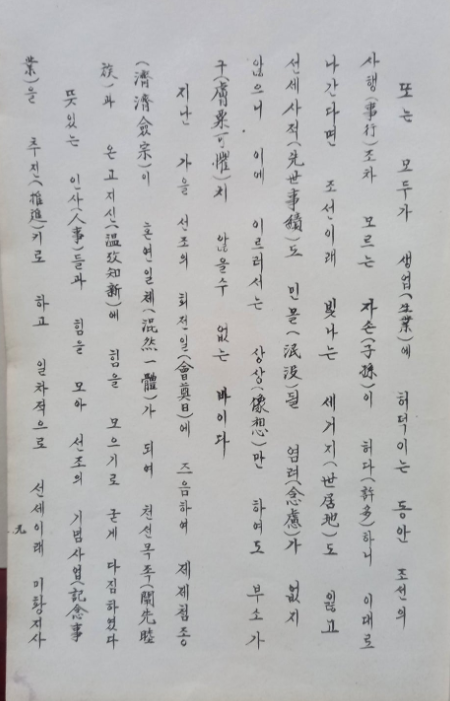 또는 모두가 생업(生業)에 허덕이는 동안 조선의
사행(事行)조차 모르는 자손(子孫)이 허다(許多)하니 이대로
나간다면 조선이래 빛나는 세거지(世居地)도 잃고
선세사적(先世事績)도 민몰(泯沒)될 염려(念慮)가 없지
않으니 이에 이르러서는 상상(像想)만 하여도 부소가
구(膚粟可懼)치 않을수 없는 바이다
지난 가을 선조의 회전일(會奠日)에 즈음하여 제제첨종
(濟濟僉宗)이 혼연일체(混然一體)가 되여 천선목족(闡先睦
族)과 온고지신(溫故知新)에 힘을 모으기로 굳게 다짐하였다
뜻있는 인사(人事)들과 힘을 모아 선조의 기념사업(記念事
業)을 추진(推進)키로 하고 일차적으로 선세이래 미황지사
九